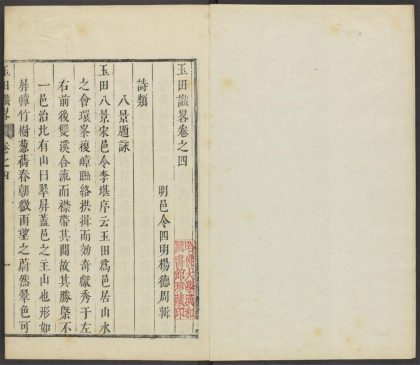 玉田識畧卷之四
明邑令四明楊德周輯
詩類
八景題詠
玉田八景宋邑令李堪序云玉田爲邑居山水
之會環峯複嶂聯絡拱揖而効奇獻秀于左
右前後雙溪合流而襟帶其間故其勝槩不
一邑治北有山曰翠屏蓋邑之主山也形如
屏幛竹樹蔥蒨春朝徹雨望之蔚然翠色可
玉田識畧
卷之四
一
哈佛大學漢和
圖書館珍藏印